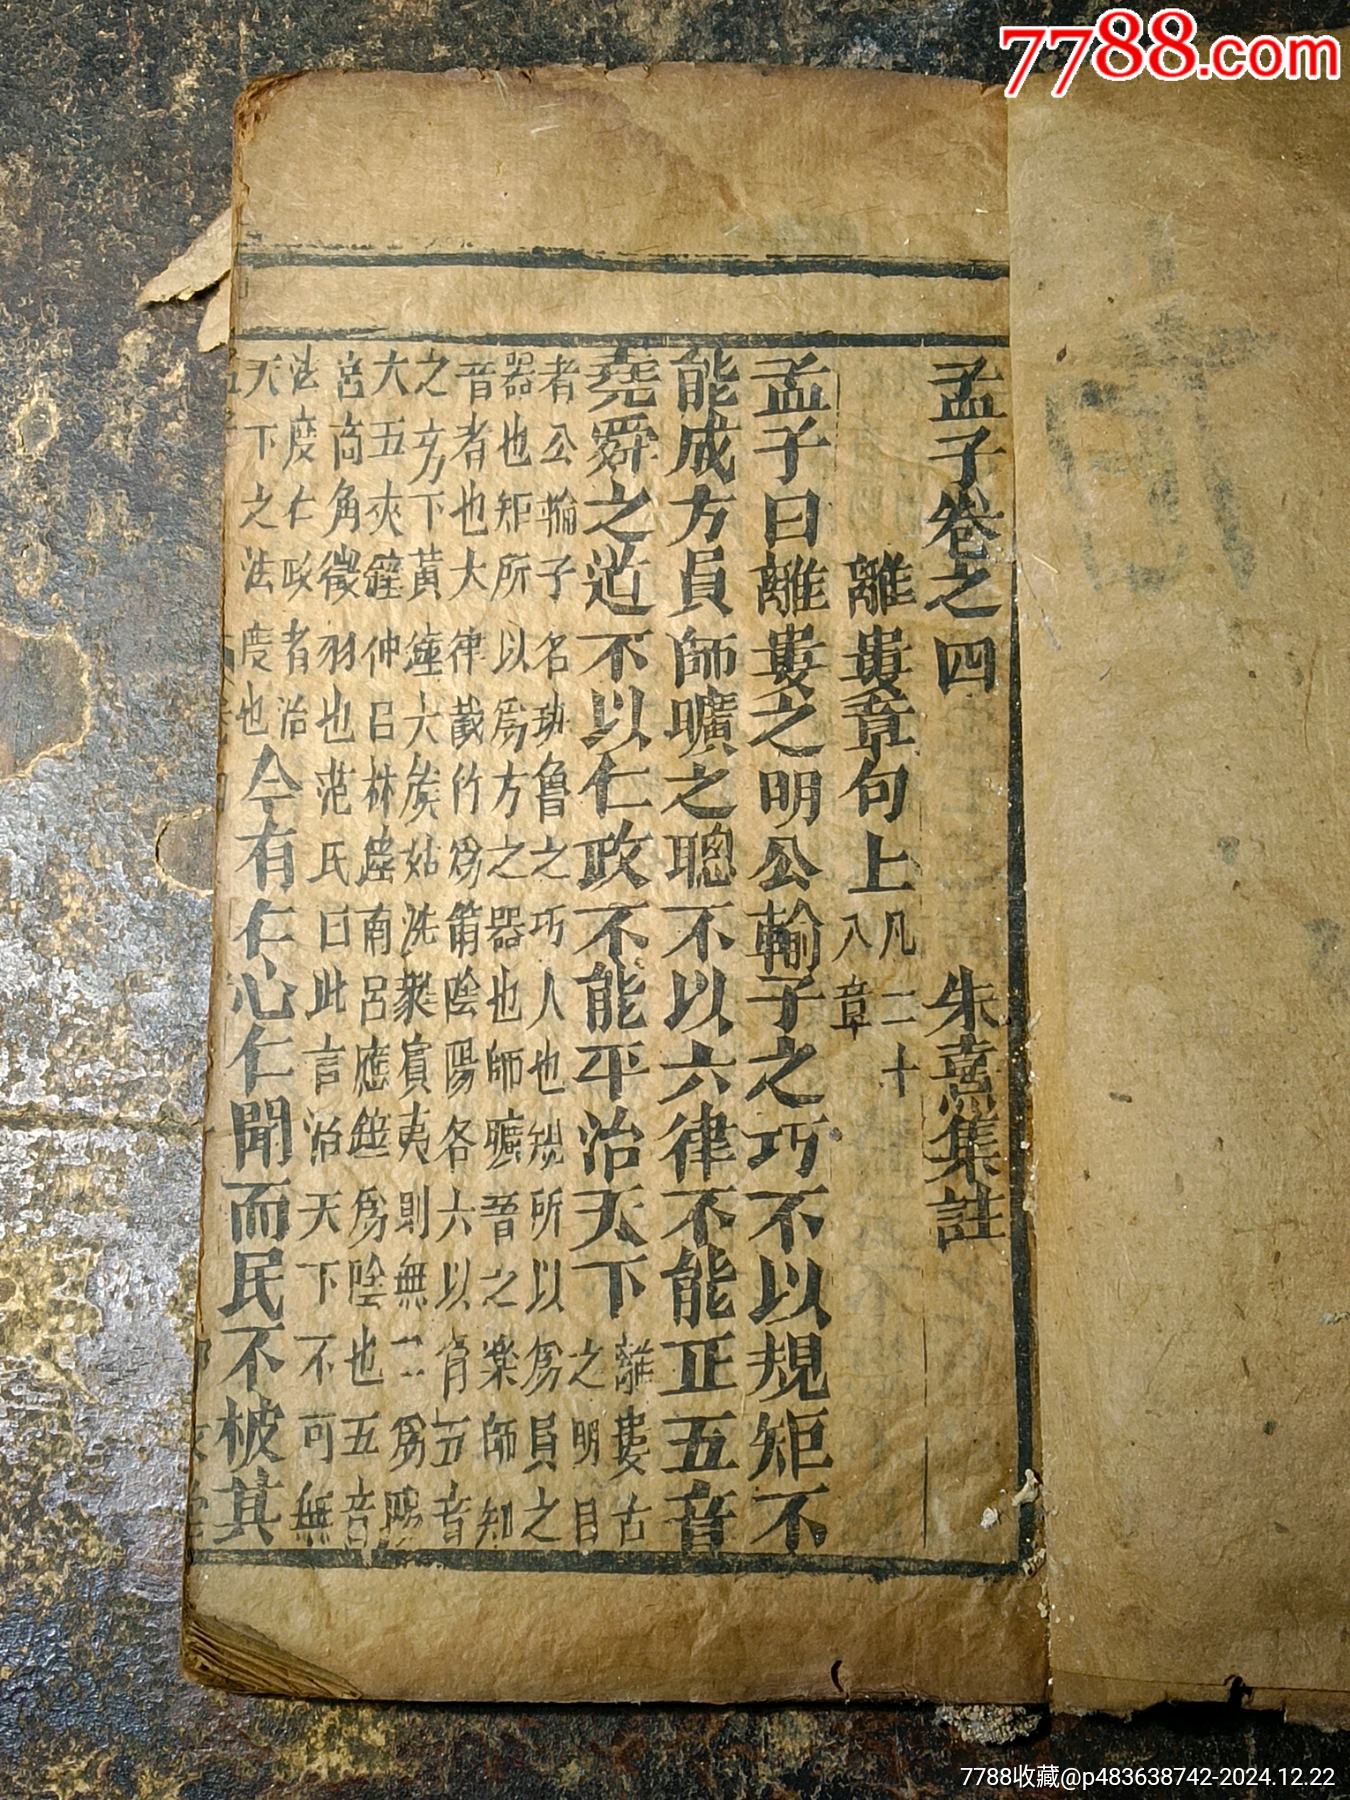 7788.com
孟子卷之四 朱熹集註
離婁章句上 凡二十
八章
孟子曰離婁之明公輸子之巧不以規矩不
能成方員師曠之聰不以六律不能正五音
堯舜之道不以仁政不能平治天下 離婁古
之明目
者公輸子名班魯之巧人也規所以爲員之
器也矩所以爲方之器也師曠晉之樂師知
音者也大律截竹爲筩陰陽各六以脊五音
之方下黃鐘大簇姑洗蕤賓夷則無二爲陽
大五夾鐘仲呂林鐘南呂應鐘爲陰也五音
宮商角徵羽也范氏曰此言治天下不可無
法度仁政者治
天下之法度也 今有仁心仁聞而民不被其
7788收藏@p483638742-2024.12.22